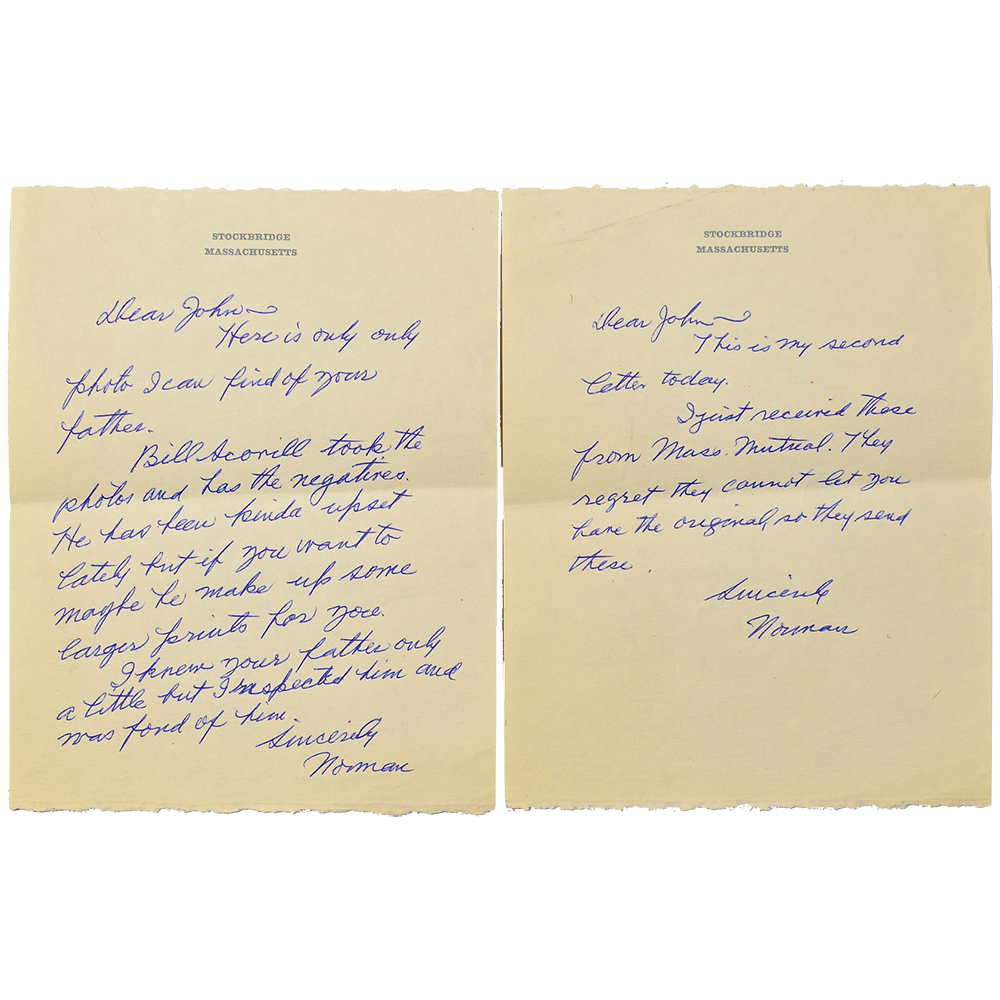 STOCKBRIDGE
MASSACHUSETTS
Dear John—
Here is only only
photo I can find of your
father.
Bill Scovill took the
photos and has the negatives.
He has been kinda upset
lately but if you want to
maybe he make up some
larger prints for you.
I knew your father only
a little but I respected him and
was fond of him.
Sincerely
Norman
STOCKBRIDGE
MASSACHUSETTS
Dear John—
This is my second
letter today.
I just received these
from Mass. Mutual. They
regret they cannot let you
have the original, so they send
these.
Sincerely
Norman